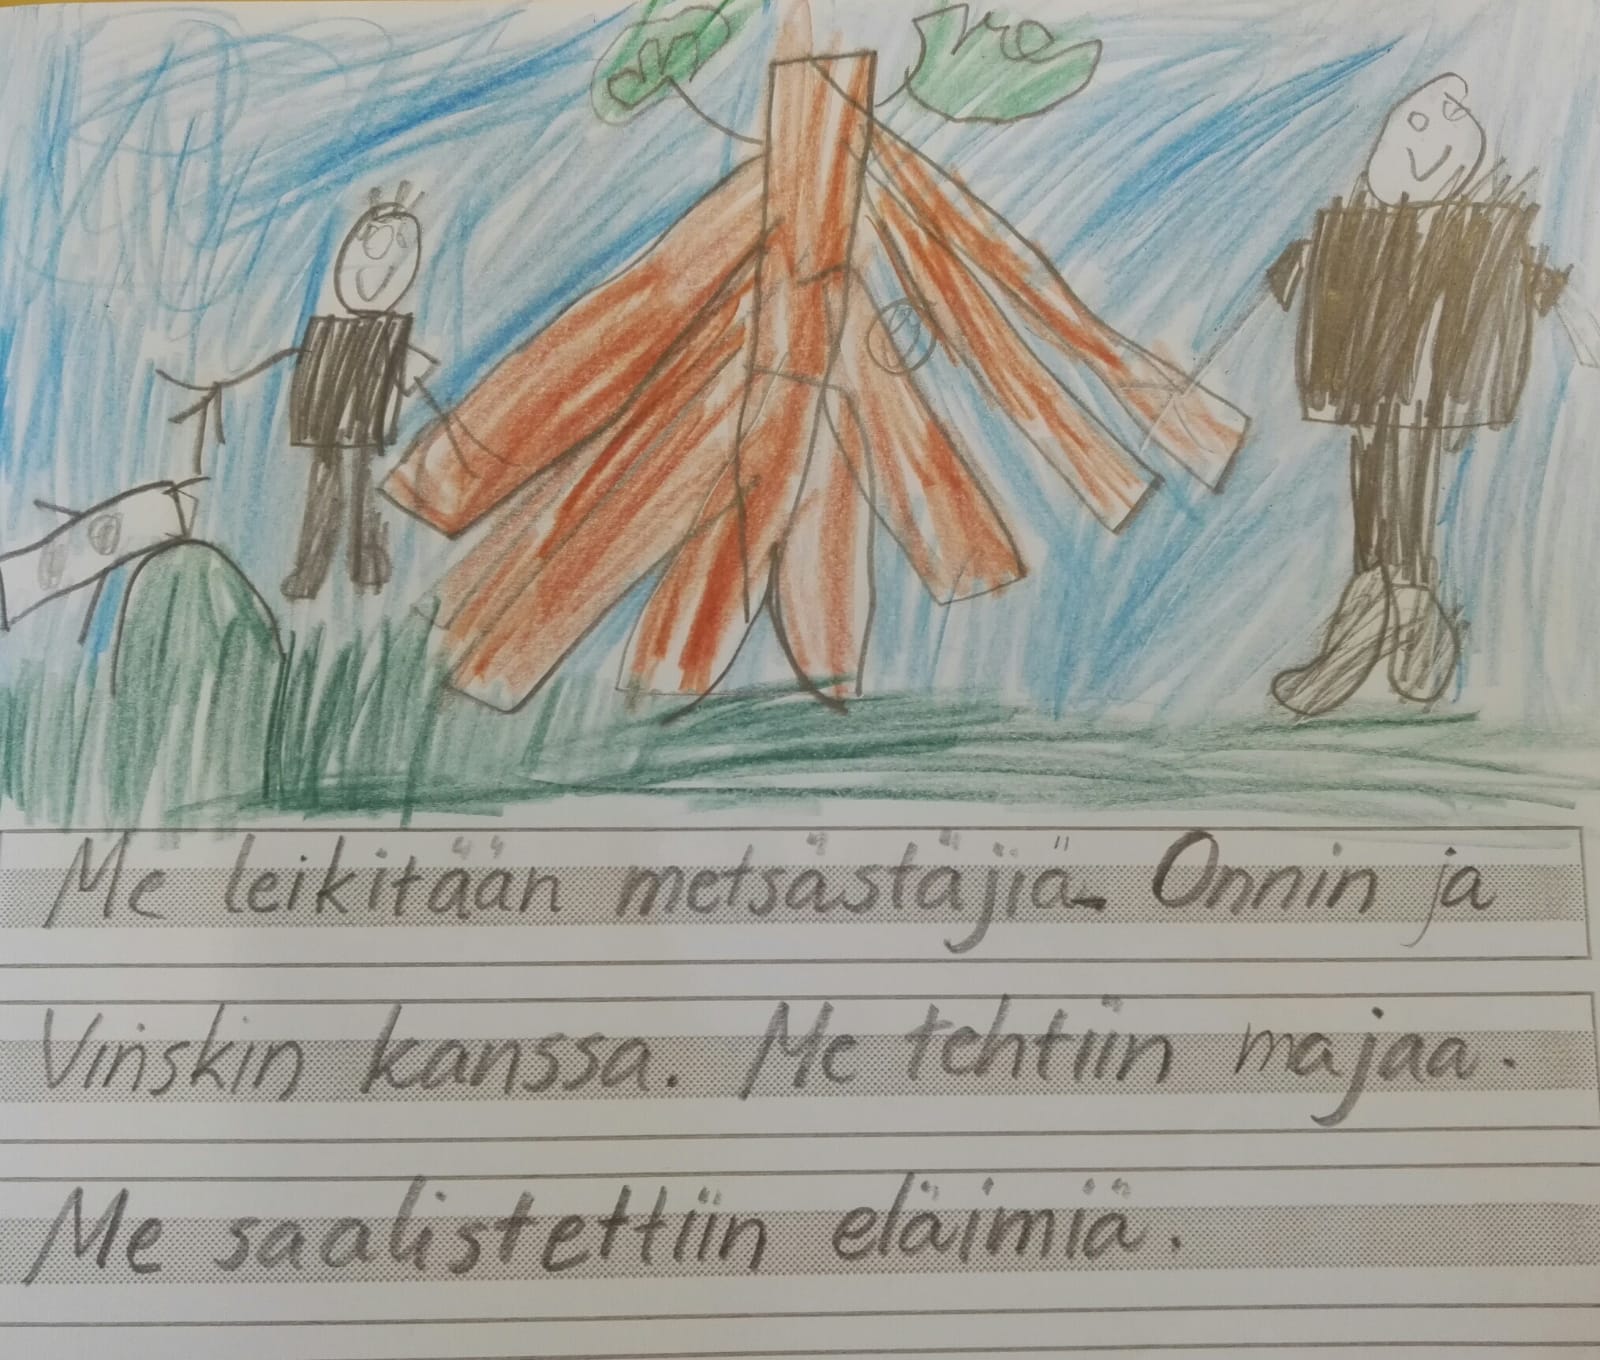 Me leikitään metsästäjiä. Onnin ja
Vinskin kanssa. Me tehtiin majaa.
Me saalistettiin eläimiä.